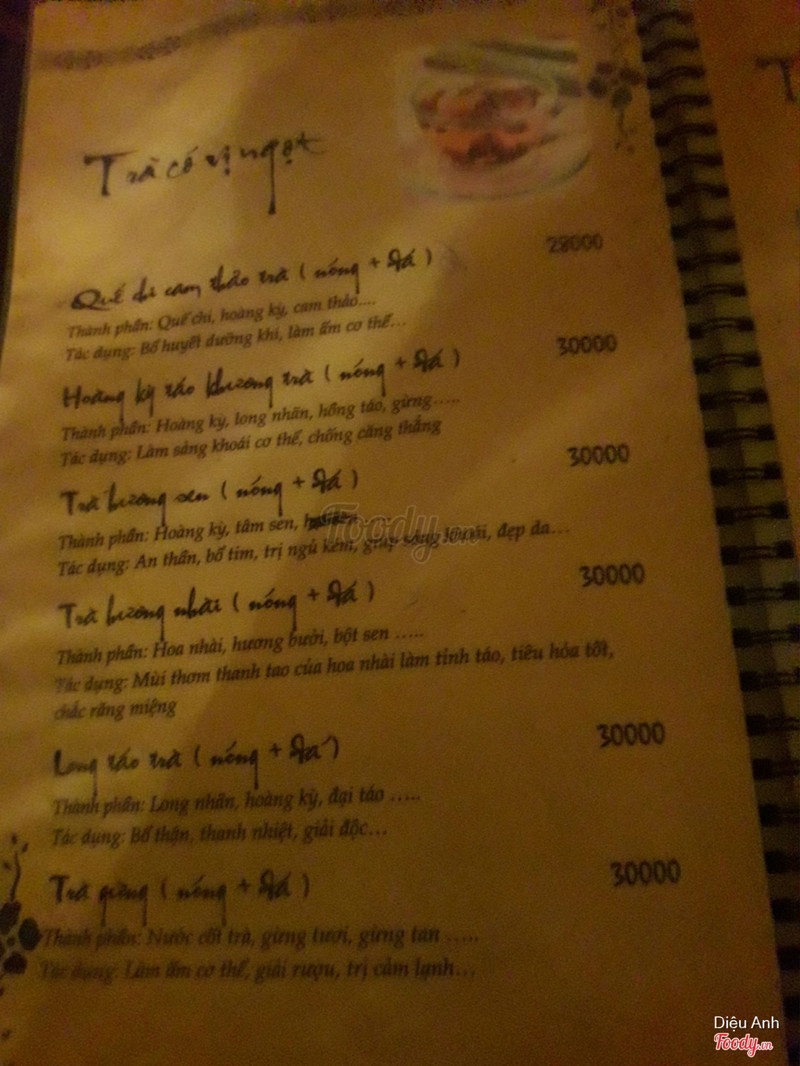 Trà có vị ngọt
Quế chi cam thảo trà ( nóng + đá ) 28000
Thành phần: Quế chi, hoàng kỳ, cam thảo....
Tác dụng: Bổ huyết dưỡng khí, làm ấm cơ thể...
Hoàng kỳ táo khương trà ( nóng + đá ) 30000
Thành phần: Hoàng kỳ, long nhãn, hồng táo, gừng.....
Tác dụng: Làm sảng khoái cơ thể, chống căng thẳng
Trà hương sen ( nóng + đá ) 30000
Thành phần: Hoàng kỳ, tâm sen,
Tác dụng: An thần, bổ tim, trị ngủ kém, giúp sảng khoái, đẹp da...
Trà hương nhài ( nóng + đá ) 30000
Thành phần: Hoa nhài, hương bưởi, bột sen .....
Tác dụng: Mùi thơm thanh tao của hoa nhài làm tỉnh táo, tiêu hóa tốt,
chắc răng miệng
Long táo trà ( nóng + đá ) 30000
Thành phần: Long nhãn, hoàng kỳ, đại táo .....
Tác dụng: Bổ thận, thanh nhiệt, giải độc...
Trà gừng ( nóng + đá ) 30000
Thành phần: Nước cốt trà, gừng tươi, gừng tan .....
Tác dụng: Làm ấm cơ thể, giải rượu, trị cảm lạnh...
T
Foody.vn
Diệu Anh
Foody.vn